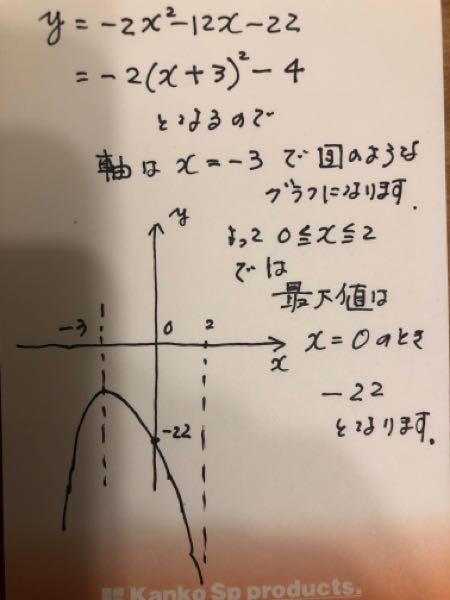 y = -2x²-12x-22
= -2(x+3)²-4
となるので
軸は x=-3 で図のような
グラフになります.
よって 0≦x≦2
では
最大値は
x=0のとき
-22
となります.
y
-3 0 2
x
-22
Kanko Sp products.